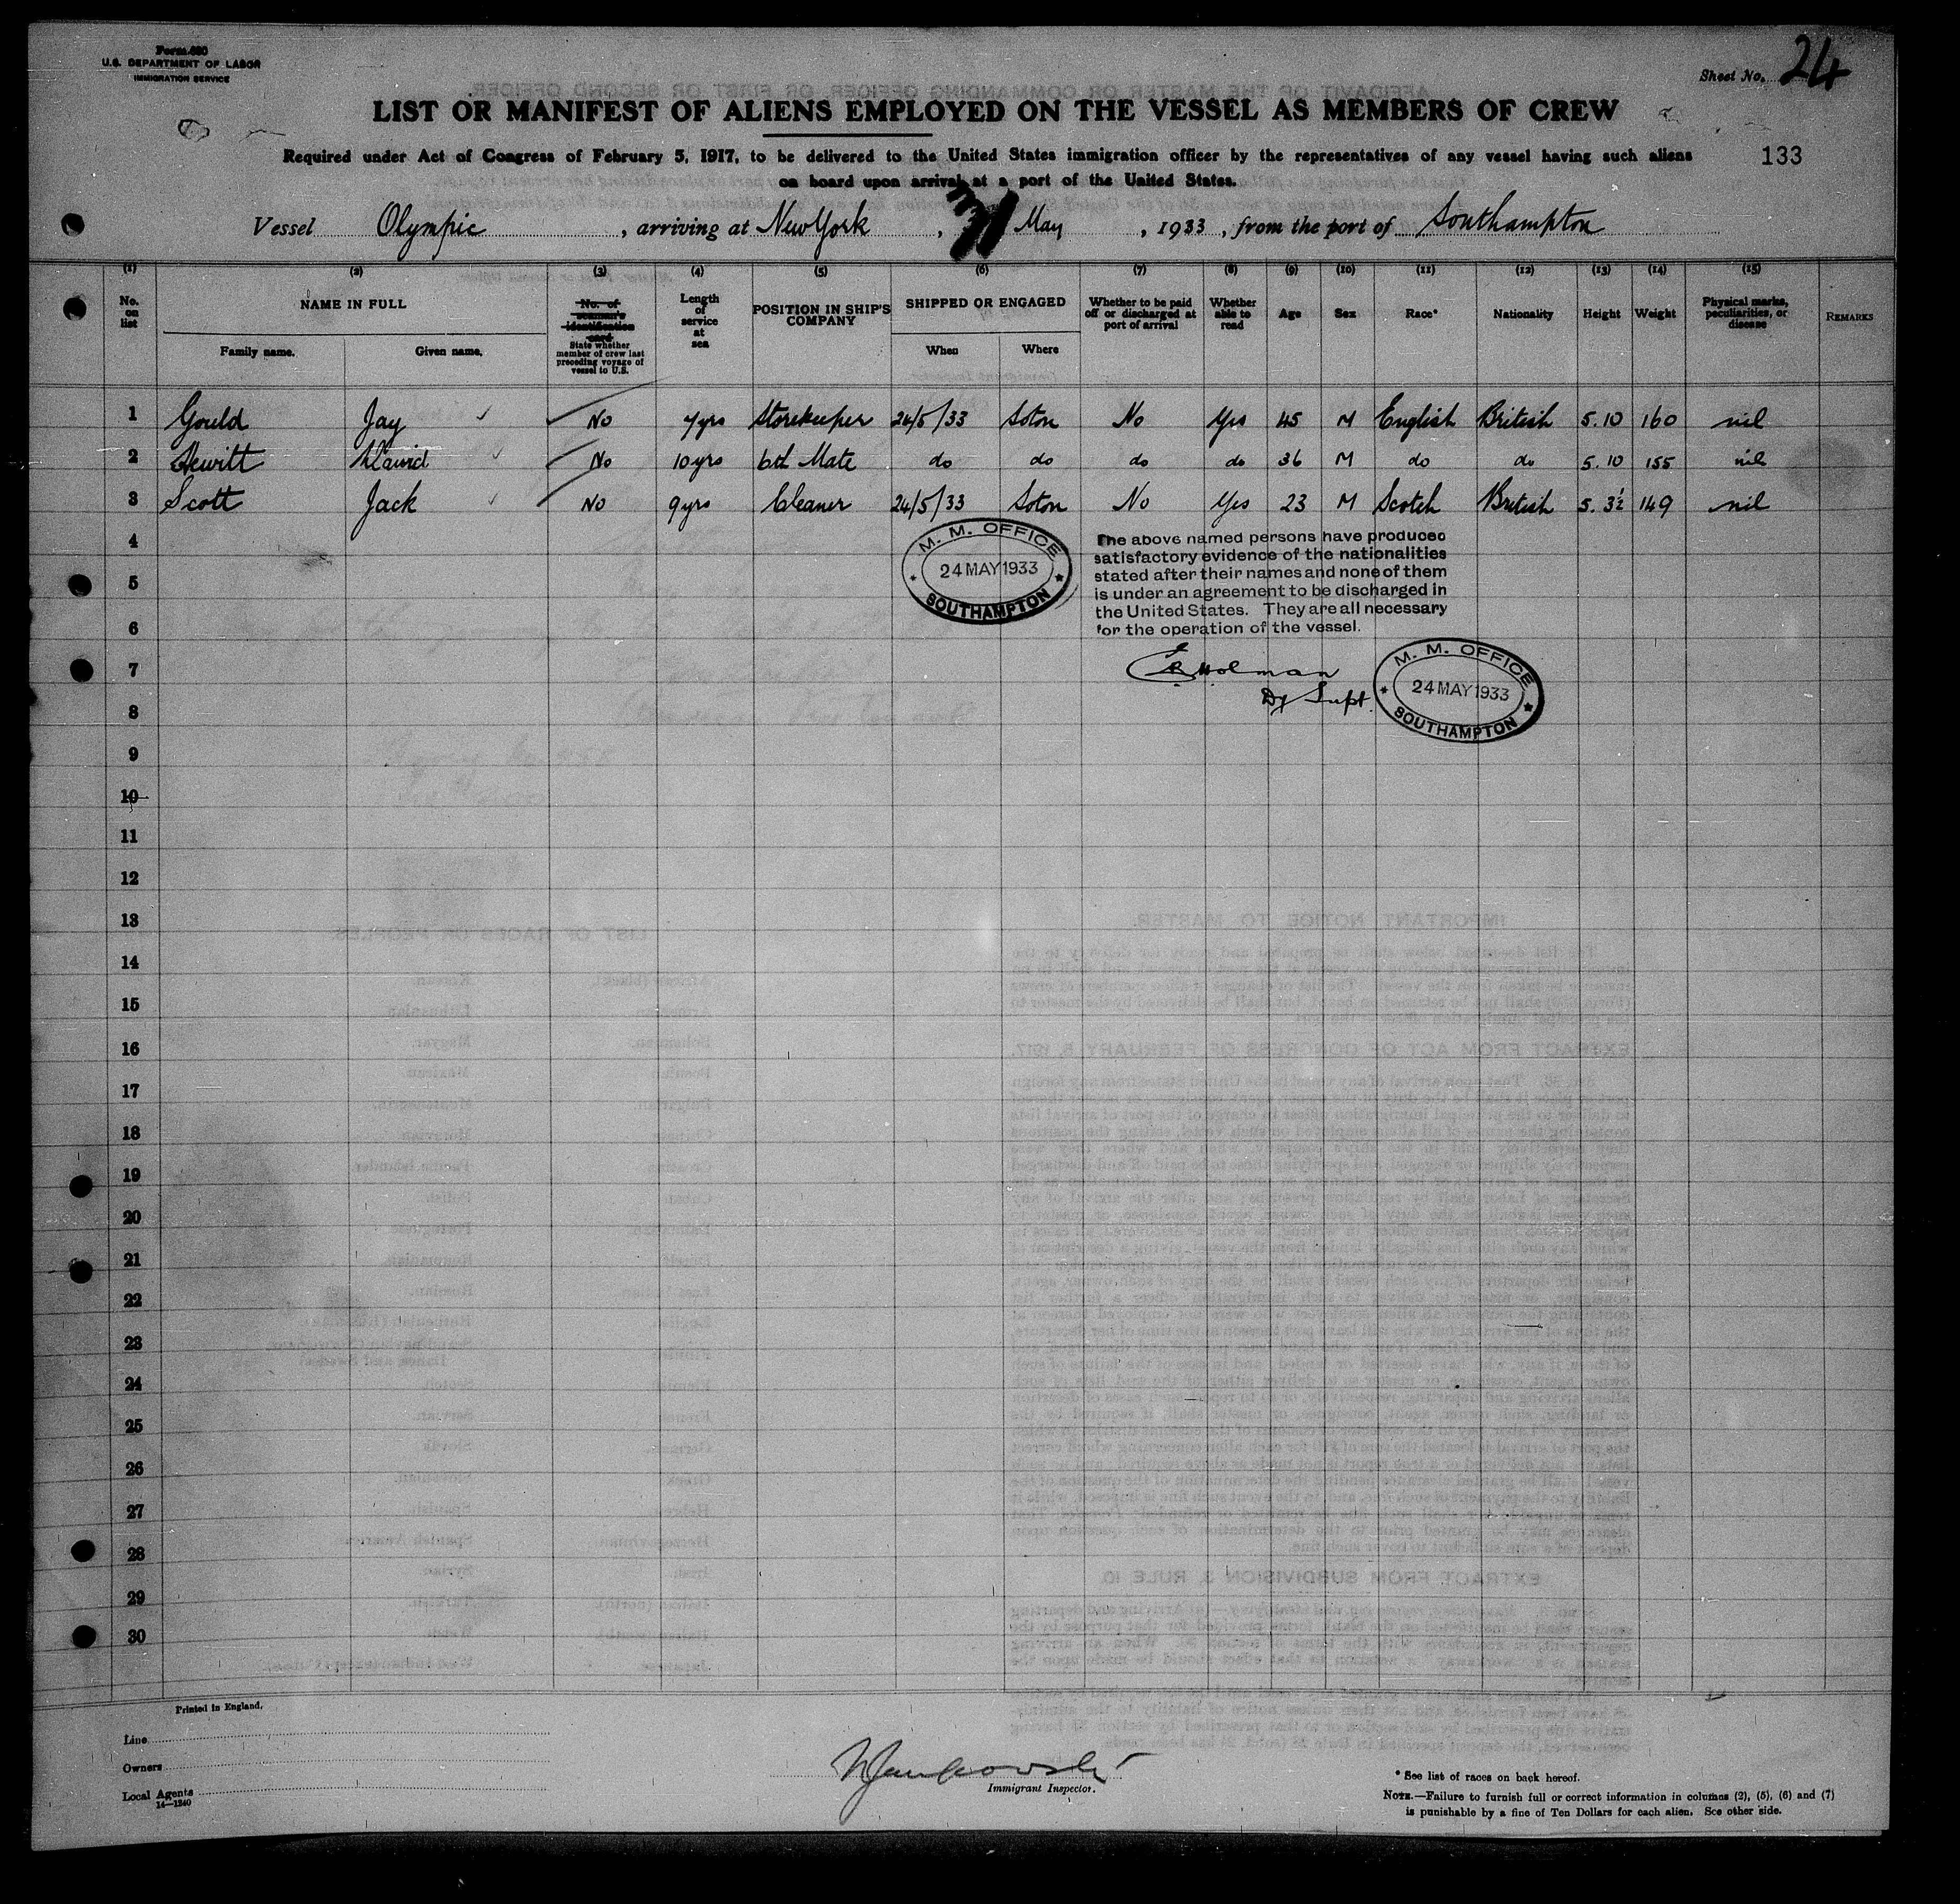 Form 680
U.S. DEPARTMENT OF LABOR
IMMIGRATION SERVICE
Sheet No. 24
LIST OR MANIFEST OF ALIENS EMPLOYED ON THE VESSEL AS MEMBERS OF CREW
Required under Act of Congress of February 5, 1917, to be delivered to the United States immigration officer by the representatives of any vessel having such aliens
133
on board upon arrival at a port of the United States.
Vessel Olympic, arriving at New York, 31 May, 1933, from the port of Southampton
(1) (2) (3) (4) (5) (6) (7) (8) (9) (10) (11) (12) (13) (14) (15)
No. on list
NAME IN FULL
Family name. Given name.
No. of seaman's identification card
State whether member of crew last preceding voyage of vessel to U.S.
Length of service at sea
POSITION IN SHIP'S COMPANY
SHIPPED OR ENGAGED
When Where
Whether to be paid off or discharged at port of arrival
Whether able to read
Age
Sex
Race*
Nationality
Height
Weight
Physical marks, peculiarities, or disease
REMARKS
1 Gould Jay No 7yrs Storekeeper 24/5/33 Soton No Yes 45 M English British 5.10 160 nil
2 Hewitt No 10yrs 6th Mate do do do do 36 M do do 5.10 155 nil
3 Scott Jack No 9yrs Cleaner 24/5/33 Soton No Yes 23 M Scotch British 5.3½ 149 nil
4
5
6
7
8
9
10
11
12
13
14
15
16
17
18
19
20
21
22
23
24
25
26
27
28
29
30
M. M. OFFICE
24 MAY 1933
SOUTHAMPTON
The above named persons have produced
satisfactory evidence of the nationalities
stated after their names and none of them
is under an agreement to be discharged in
the United States. They are all necessary
for the operation of the vessel.
Holman
Dy Supt.
M. M. OFFICE
24 MAY 1933
SOUTHAMPTON
Printed in England.
Line
Owners
Local Agents
14—1240
Immigrant Inspector.
* See list of races on back hereof.
NOTE.—Failure to furnish full or correct information in columns (2), (5), (6) and (7)
is punishable by a fine of Ten Dollars for each alien. See other side.